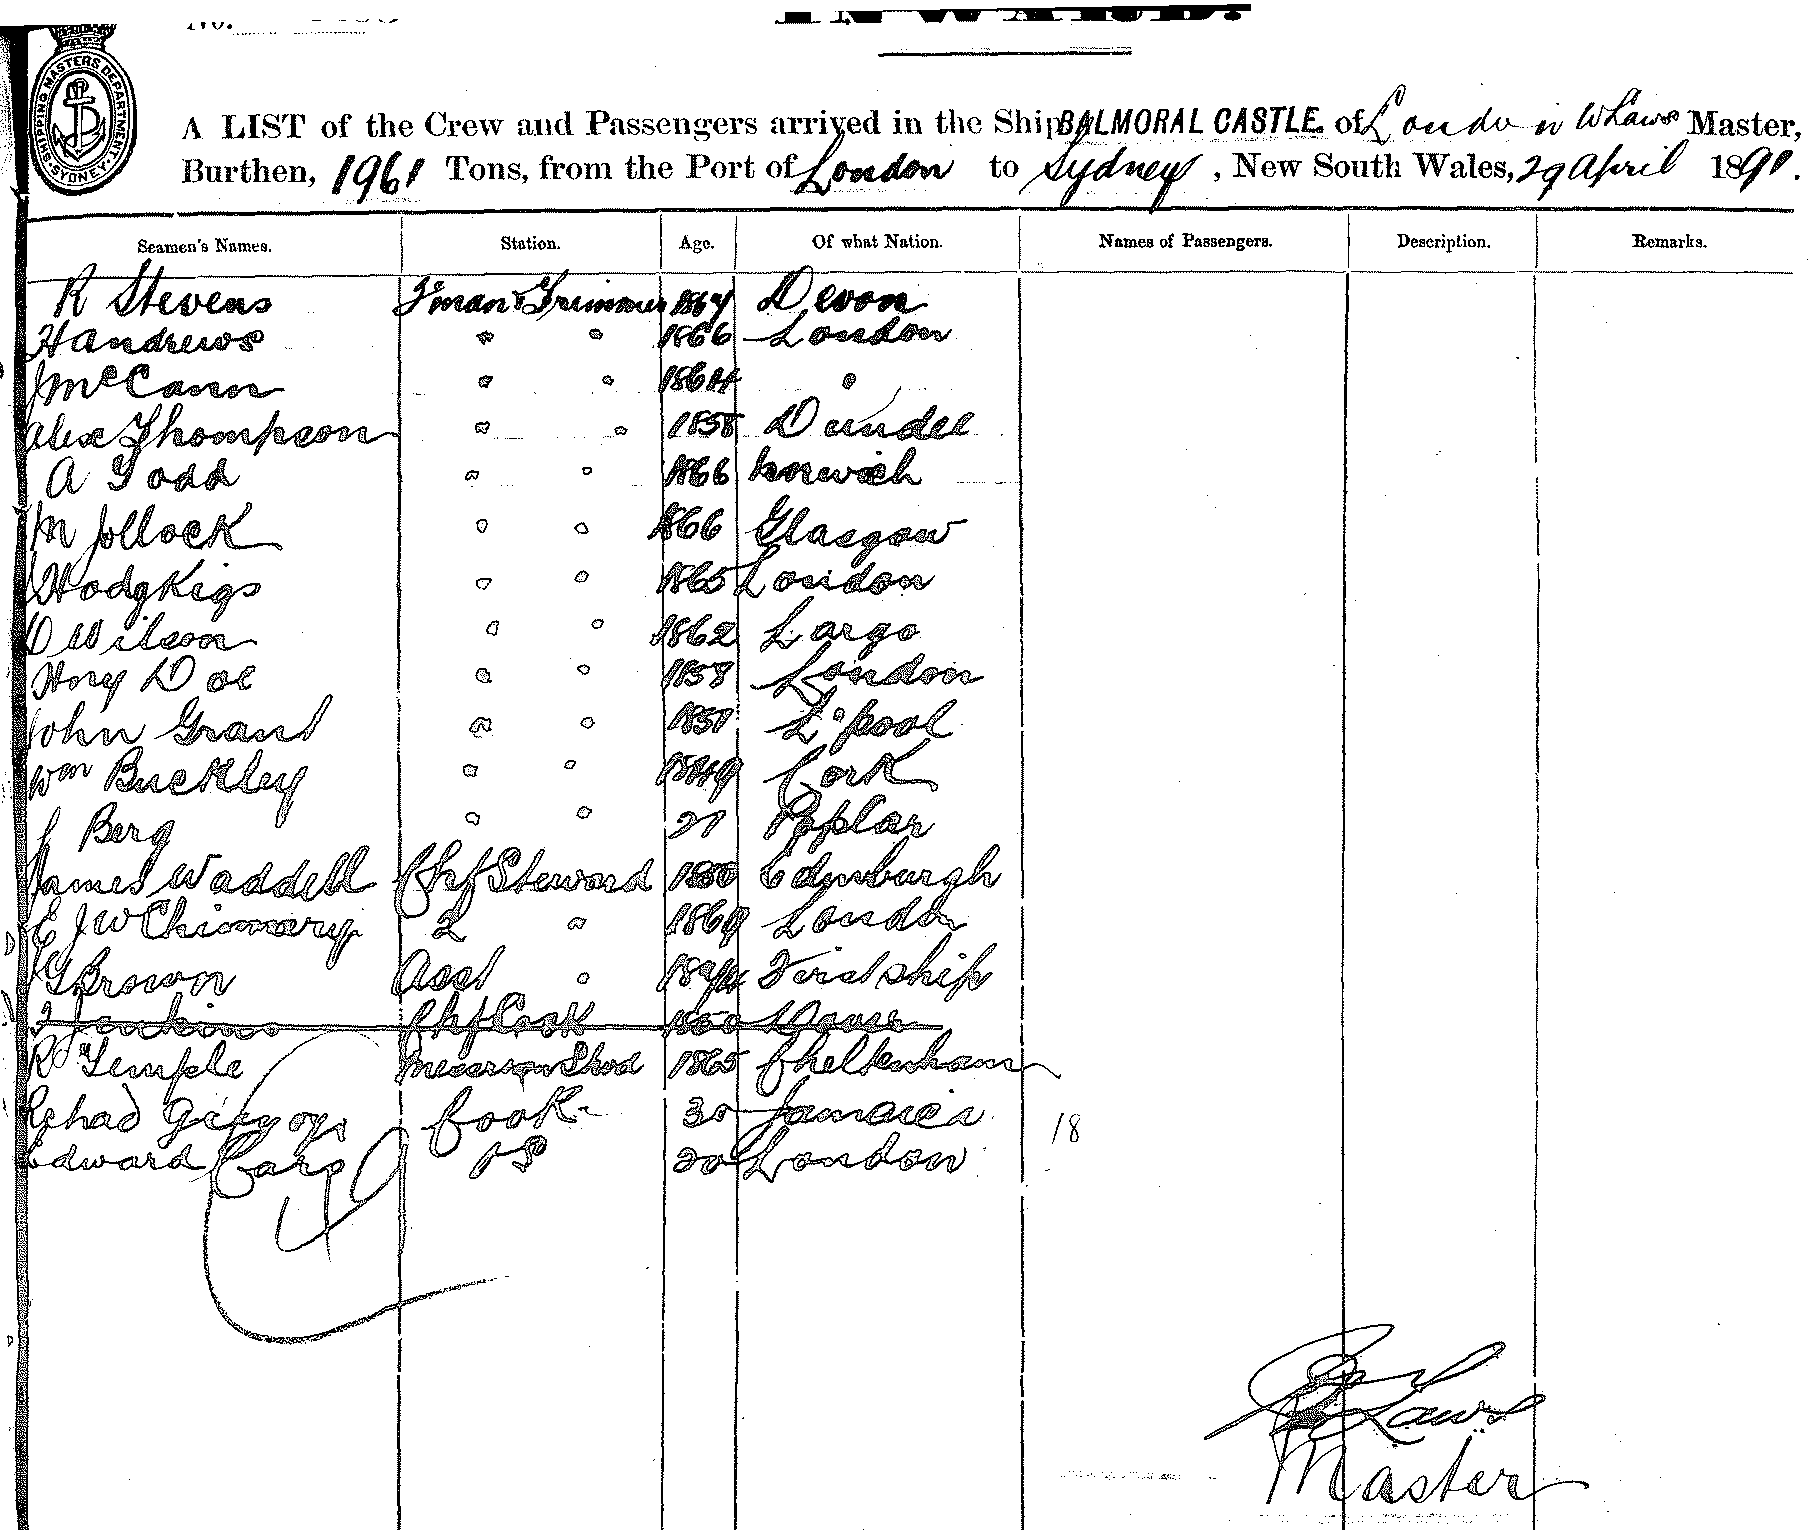 No.
SHIPPING MASTERS DEPARTMENT SYDNEY
A LIST of the Crew and Passengers arrived in the Ship BALMORAL CASTLE of London W Laws Master,
Burthen, 1961 Tons, from the Port of London to Sydney, New South Wales, 29 April 1891.
Seamen's Names. Station. Age. Of what Nation. Names of Passengers. Description. Remarks.
R Stevens Fman & Trimmer 1867 Devon
H Andrews " " 1866 London
J McCann " " 1864 "
Alex Thompson " " 1858 Dundee
A Todd " " 1866 Norwich
M Jollock " " 1866 Glasgow
Hodgkigs " " 1865 London
D Wilson " " 1862 Largo
Hny Doe " " 1858 London
John Grant " " 1851 L'pool
Wm Buckley " " 1849 Cork
J Berg " " 21 Poplar
James Waddell Chf Steward 1850 Edinburgh
E J W Chimmary 2 " 1869 London
Brown Asst " 1874 First ship
Jenkins Chf Cook
R Temple Messroom Stwd 1865 Cheltenham
Richad Gregory Cook 30 Jamaica 18
Edward Carp 20 London
Laws
Master